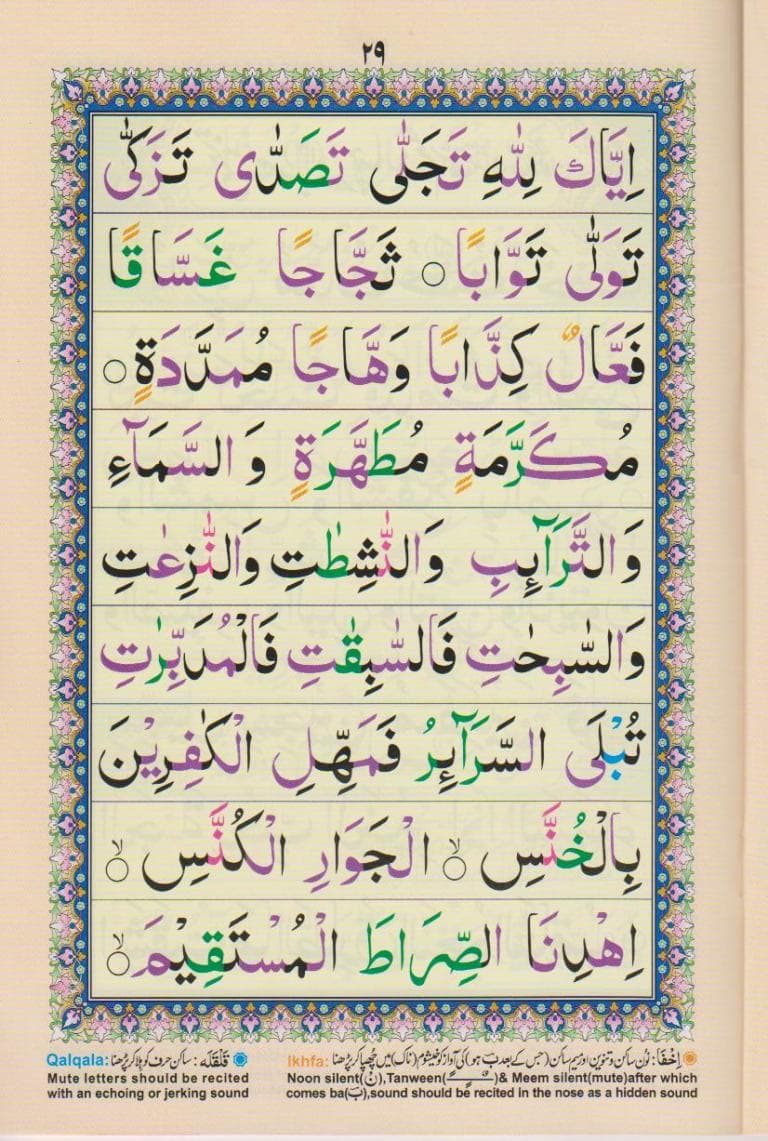 ۲۹
اِيَّاكَ لِلّٰهِ تَجَلّٰى تَصَدّٰى تَزَكّٰى
تَوَلّٰى تَوَّابًا ○ ثَجَّاجًا غَسَّاقًا
فَعَّالٌ كِذَّابًا وَهَّاجًا مُمَدَّدَةٍ ○
مُكَرَّمَةٍ مُطَهَّرَةٍ وَالسَّمَآءِ
وَالتَّرَآئِبِ وَالنّٰشِطٰتِ وَالنّٰزِعٰتِ
وَالسّٰبِحٰتِ فَالسّٰبِقٰتِ فَالْمُدَبِّرٰتِ
تُبْلَى السَّرَآئِرُ فَمَهِّلِ الْكٰفِرِيْنَ
بِالْخُنَّسِ ○ۙ الْجَوَارِ الْكُنَّسِ ○ۙ
اِهْدِنَا الصِّرَاطَ الْمُسْتَقِيْمَ ○ۙ
اِخْفَا: نون ساکن و تنوین اور میم ساکن (جس کے بعد ب ہو) کی آواز کو خیشوم (ناک) میں چھپا کر پڑھنا Ikhfa:
Noon silent(نْ),Tanween(ـًـٍـٌ)& Meem silent(mute)after which
comes ba(بَ),sound should be recited in the nose as a hidden sound
قَلْقَلَه: ساکن حرف کو ہلا کر پڑھنا Qalqala:
Mute letters should be recited
with an echoing or jerking sound